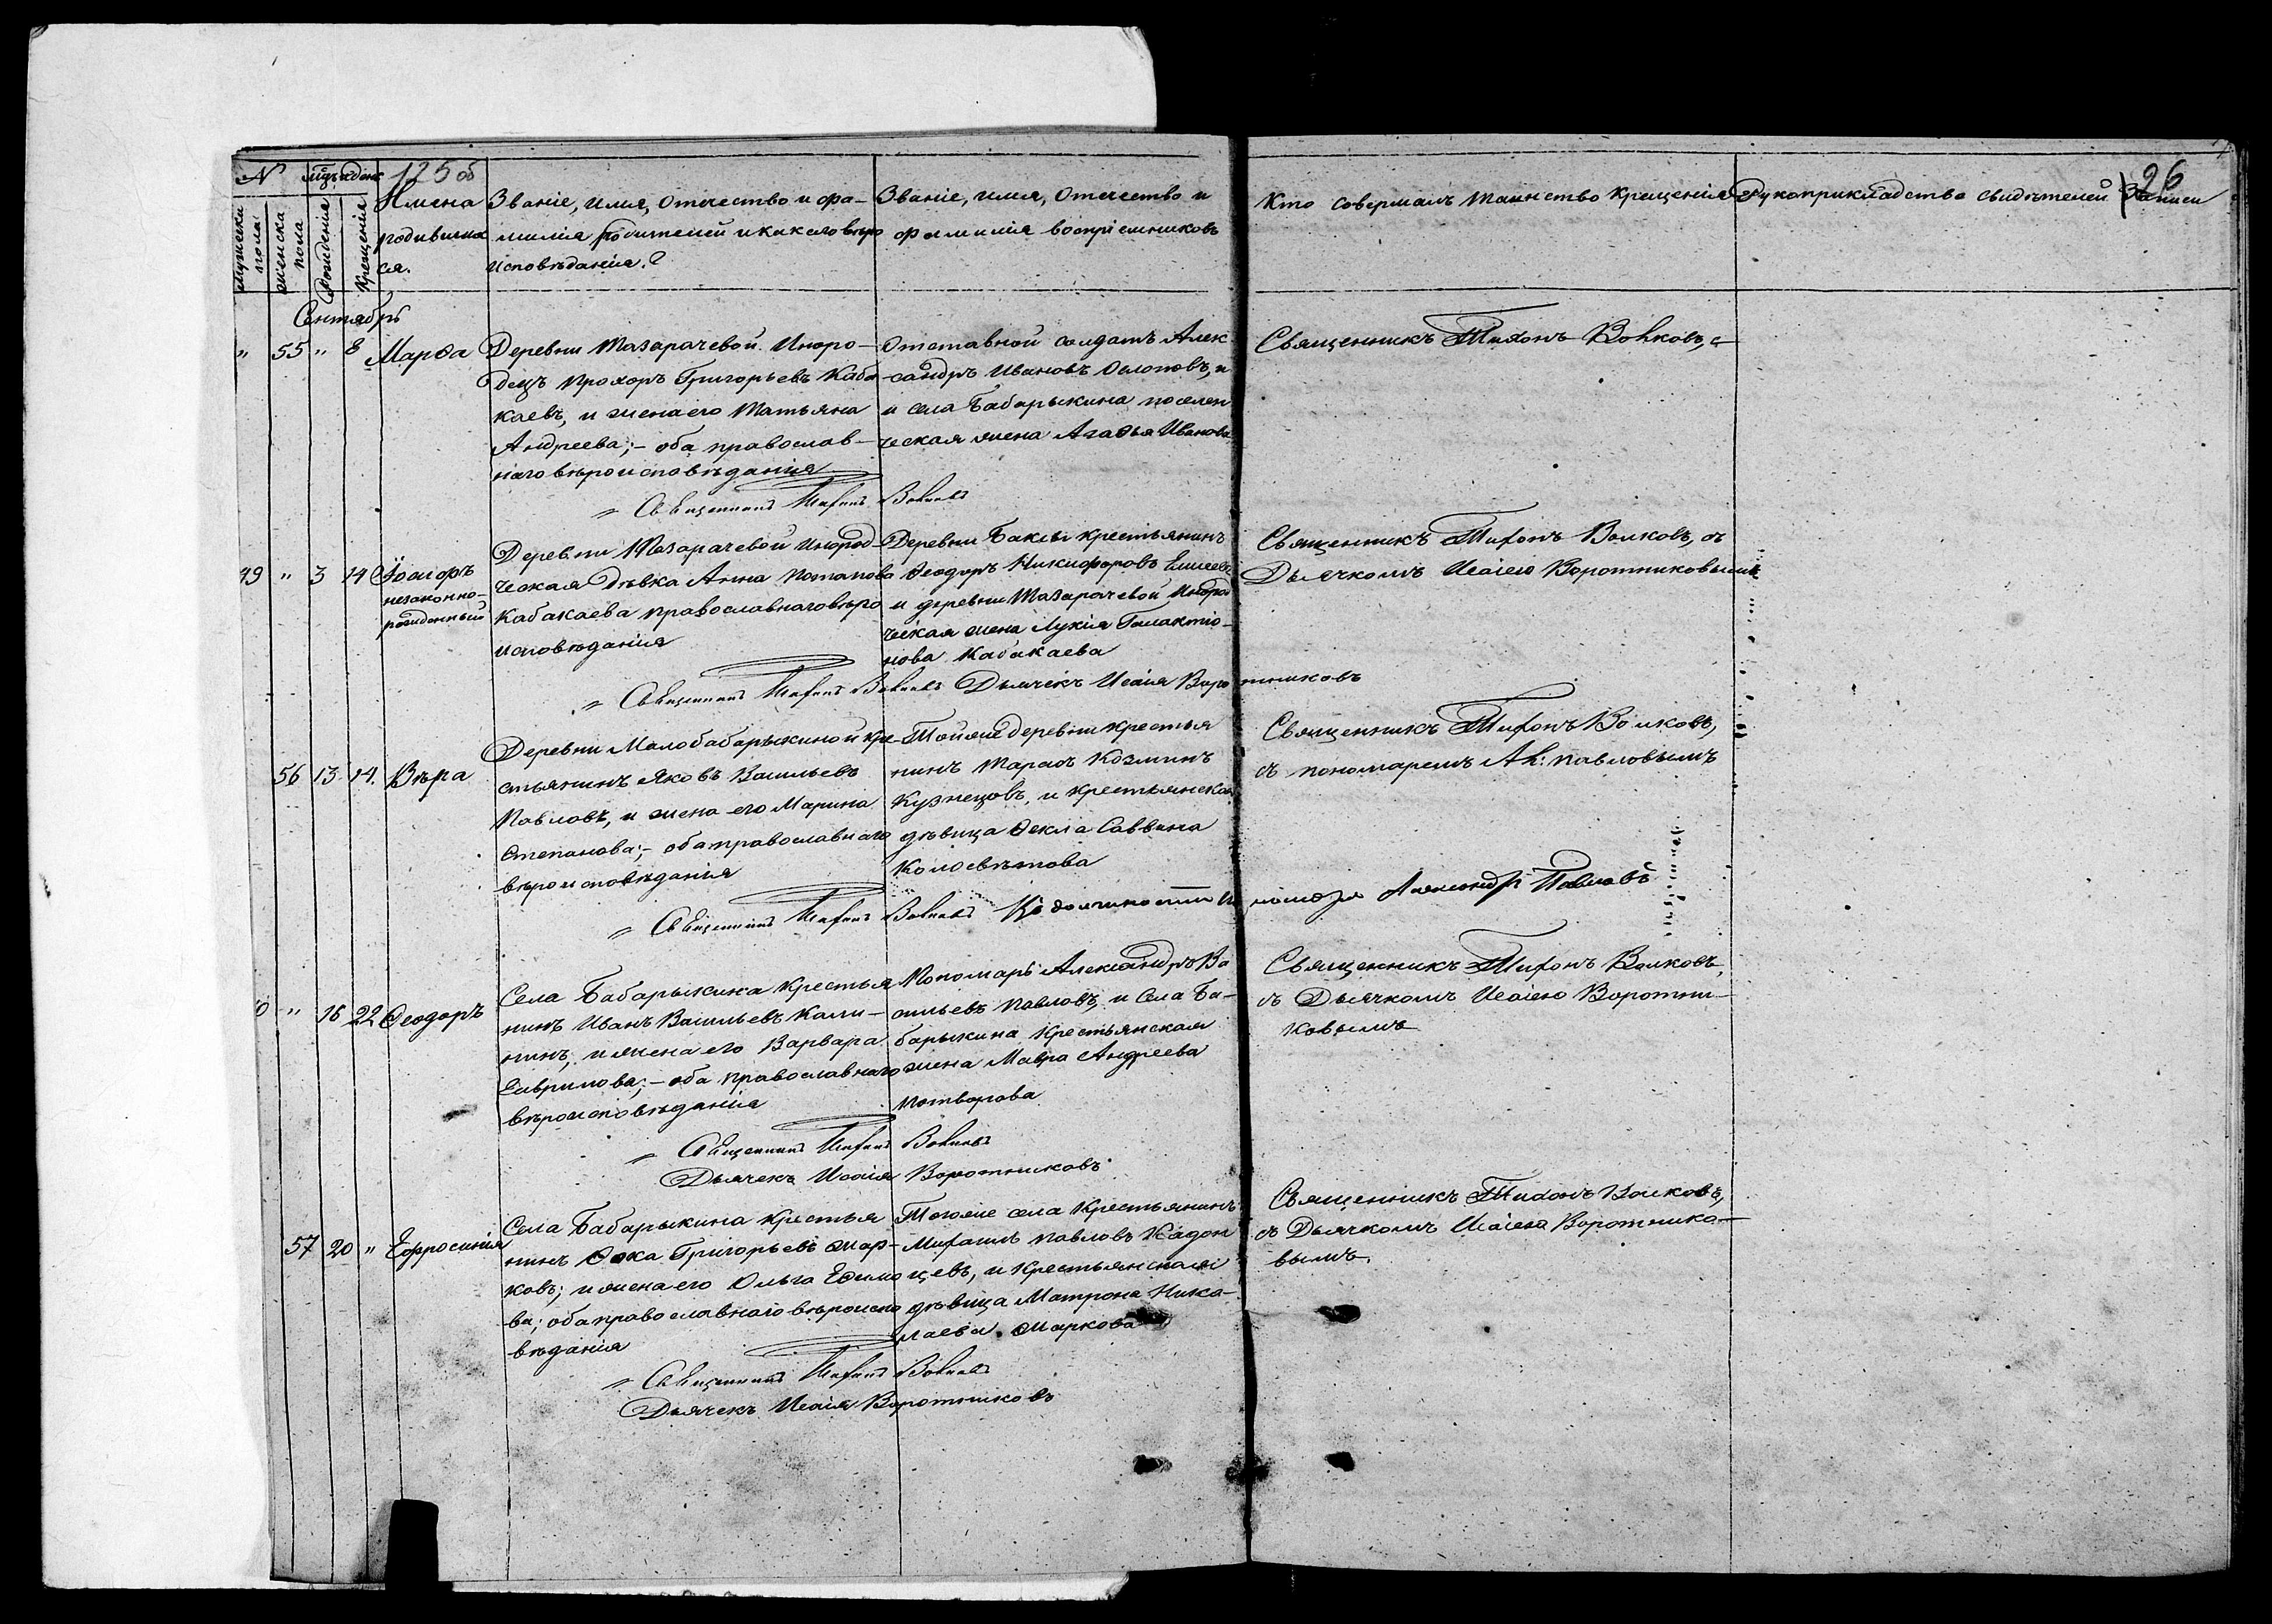 125 об
26
N
мцъ и день
Мужеска пола
Женска пола
Рожденія
Крещенія
Имена
родившихся.
Званіе, имя, Отечество и фа-
милія родителей и какого вѣро
исповѣданія?
Званіе, имя, Отечество и
фамилія воспріемниковъ
Кто совершалъ таинство Крещенія
Рукоприкладство свидѣтелей Записи
Сентябрь
" 55 " 8 Марѳа
Деревни Тазарачевой Иноро-
децъ Прохоръ Григорьевъ Каба
каевъ, и жена его Татьяна
Андреева; - оба православ-
наго вѣроисповѣданія
Отставной солдатъ Алек
сандръ Ивановъ Осиповъ, и
и села Бабарыкина поселен
ческая жена Агаѳья Иванова
Священникъ Тихонъ Волковъ, с
Священникъ Тихонъ Волковъ
49 " 3 14
незаконно-
рожденный
Деревни Тазарачевой Инород-
ческая дѣвка Анна Потапова
Кабакаева православнаго вѣро
исповѣданія
Деревни Баксы крестьянинъ
Ѳеодоръ Никифоровъ Елисеевъ
и деревни Тазарачевой Инород
ческая жена Лукія Галактіо-
нова Кабакаева
Священникъ Тихонъ Волковъ, съ
Дьячкомъ Исаіею Воротниковымъ
Священникъ Тихонъ Волковъ Дьячекъ Исаія Воротниковъ
56 13 14. Вѣра
Деревни Малобабарыкиной кре-
стьянинъ Яковъ Васильевъ
Павловъ, и жена его Марина
Степанова; - оба православнаго
вѣроисповѣданія
Тойже деревни крестья
нинъ Тарасъ Козминъ
Кузнецовъ, и крестьянская
дѣвица Ѳекла Саввина
Колосвѣтова
Священникъ Тихонъ Волковъ,
съ пономаремъ Ал: Павловымъ
Священникъ Тихонъ Волковъ Въ должности пономаря Александръ Павловъ
0 " 16 22 Ѳеодоръ
Села Бабарыкина крестья
нинъ Иванъ Васильевъ Кали-
нинъ, и жена его Варвара
Гаврилова; - оба православнаго
вѣроисповѣданія
Пономарь Александръ Ва
сильевъ Павловъ, и села Ба-
барыкина Крестьянская
жена Мавра Андреева
Потворова
Священникъ Тихонъ Волковъ,
съ Дьячкомъ Исаіею Воротни-
ковымъ
Священникъ Тихонъ Волковъ
Дьячекъ Исаія Воротниковъ
57 20 " Ефросинія
Села Бабарыкина крестья
нинъ Ѳока Григорьевъ Мар-
ковъ; и жена его Ольга Ефимо
ва; оба православнаго вѣроиспо
вѣданія
Тогоже села Крестьянинъ
Михаилъ Павловъ Кадон
цевъ, и Крестьянская
дѣвица Матрона Нико-
лаева Маркова
Священникъ Тихонъ Волковъ,
съ Дьячкомъ Исаіею Воротнико-
вымъ.
Священникъ Тихонъ Волковъ
Дьячекъ Исаія Воротниковъ